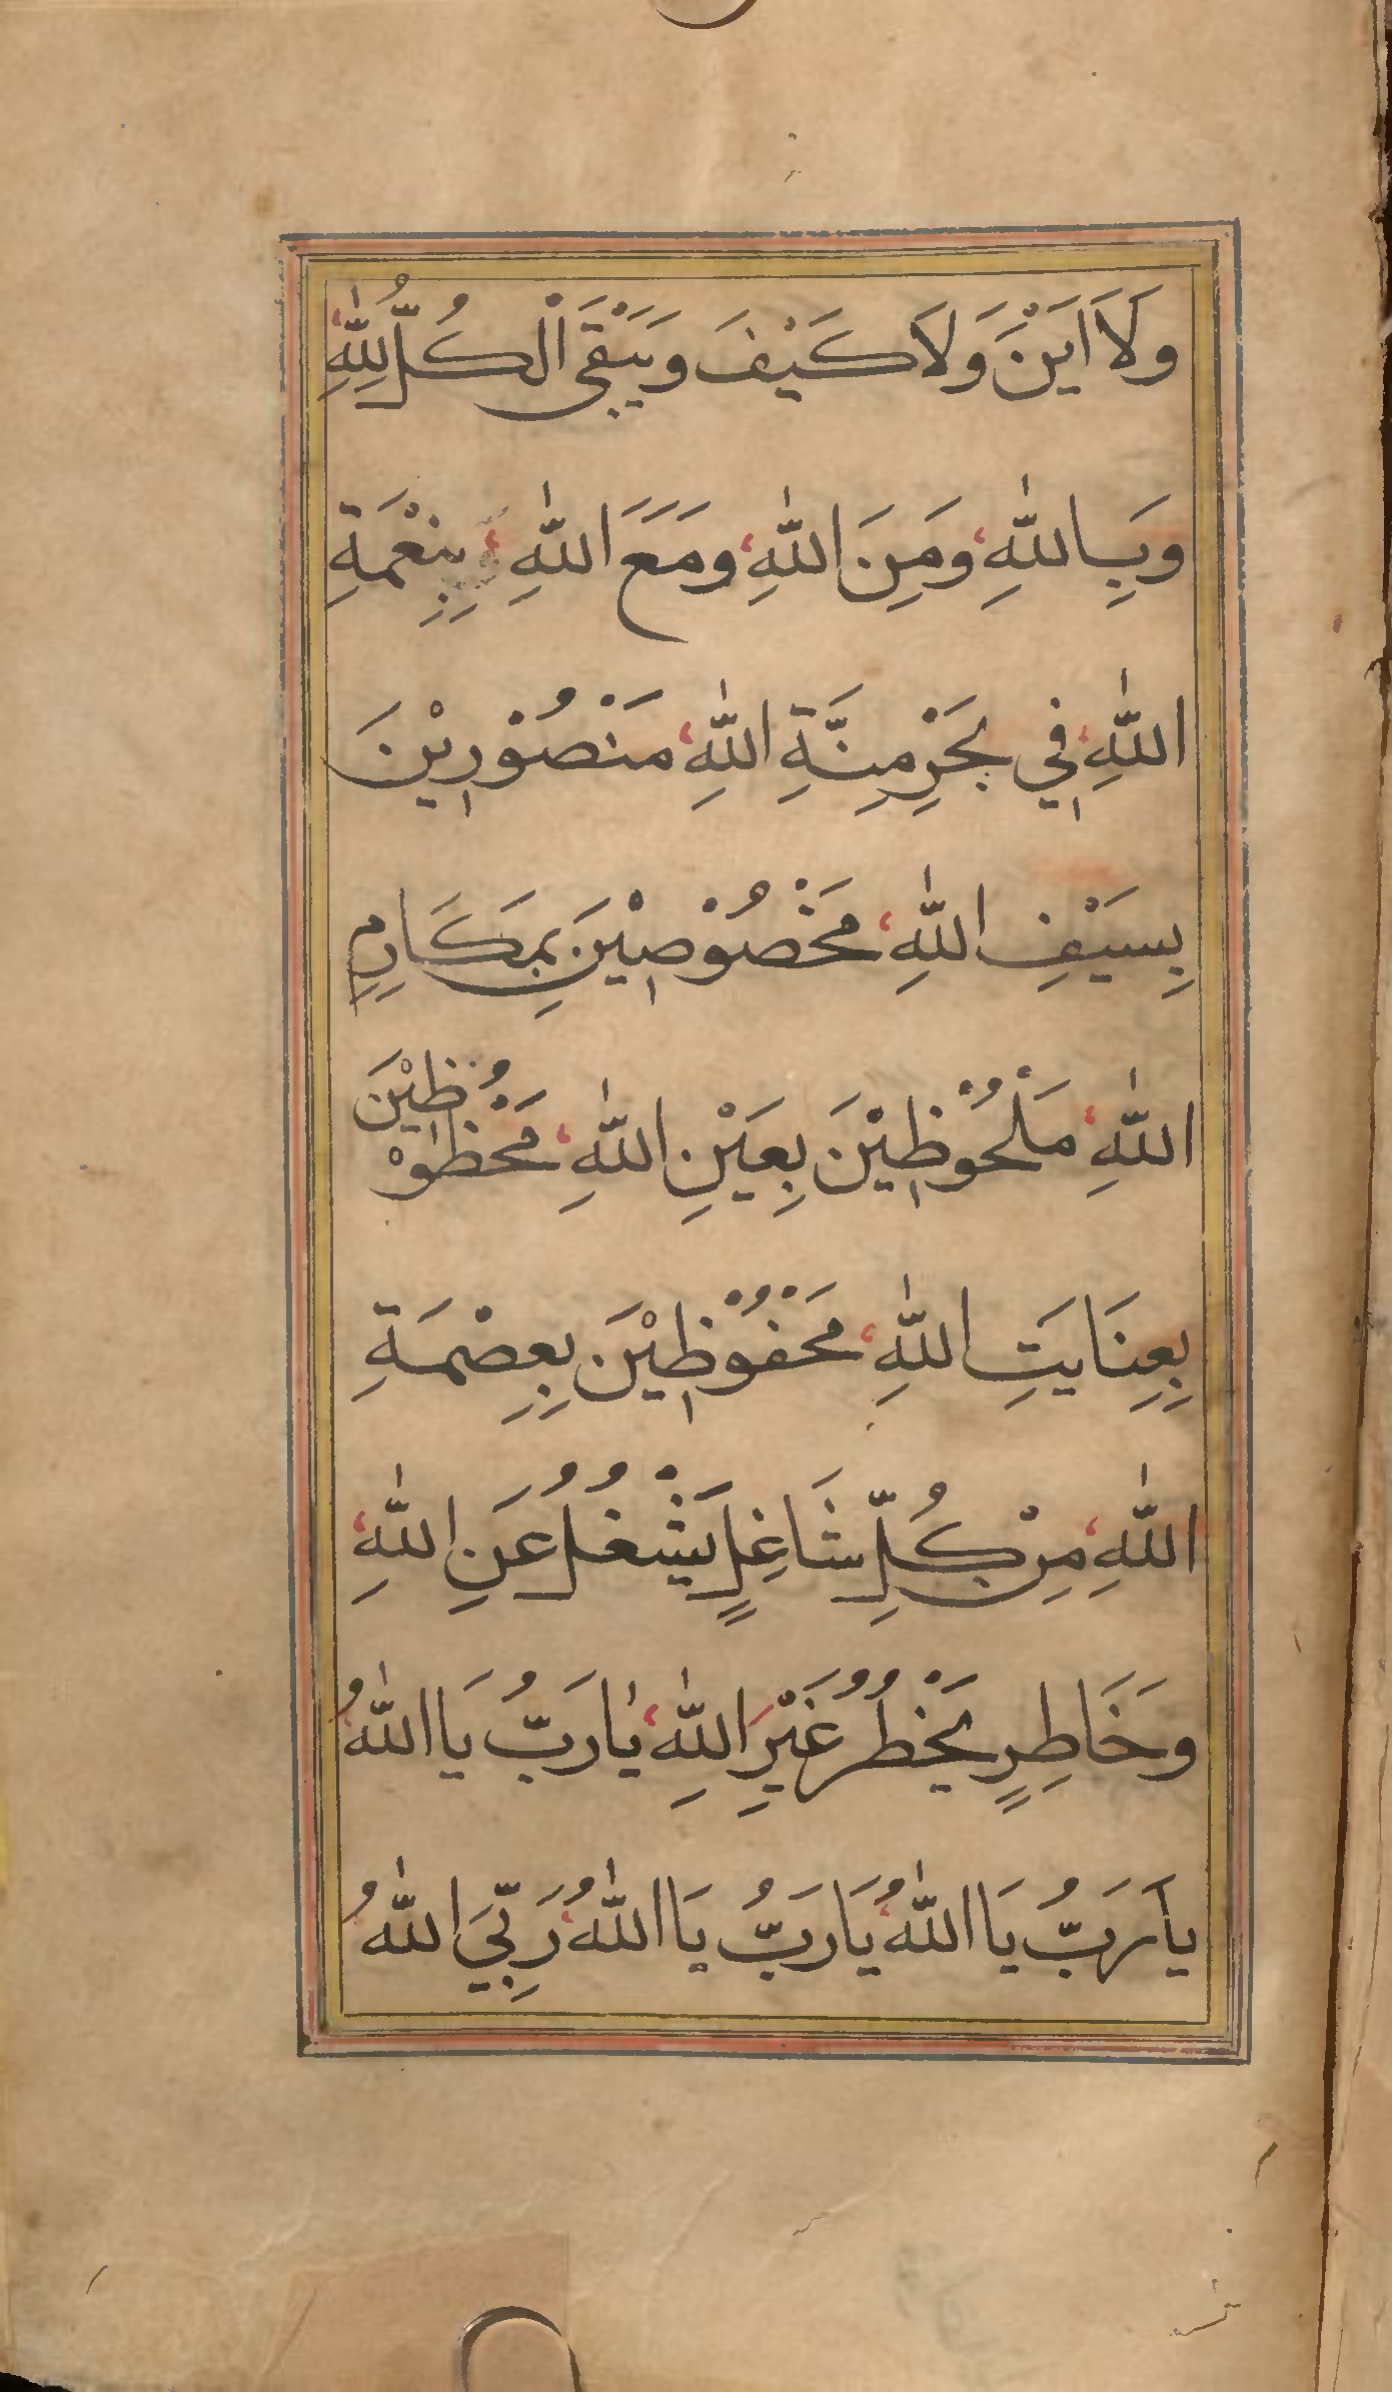 وَلَا اَيْنَ وَلَا كَيْفَ وَيَبْقَى اَلْكُلُّ لِلّٰهِ
وَبِاللّٰهِ وَمِنَ اللّٰهِ وَمَعَ اللّٰهِ بِنِعْمَةِ
اللّٰهِ فِي بَحْرِ مِنَّةِ اللّٰهِ مَنْصُوْرِيْنَ
بِسَيْفِ اللّٰهِ مَخْصُوْصِيْنَ بِمَكَارِمِ
اللّٰهِ مَلْحُوْظِيْنَ بِعَيْنِ اللّٰهِ مَحْظُوْظِيْنَ
بِعِنَايَتِ اللّٰهِ مَحْفُوْظِيْنَ بِعِصْمَةِ
اللّٰهِ مِنْ كُلِّ شَاغِلٍ يَشْغُلُ عَنِ اللّٰهِ
وَخَاطِرٍ يَخْطُرُ غَيْرِ اللّٰهِ يٰارَبُّ يَا اللّٰهُ
يَارَبُّ يَا اللّٰهُ يَارَبُّ يَا اللّٰهُ رَبِّيَ اللّٰهُ